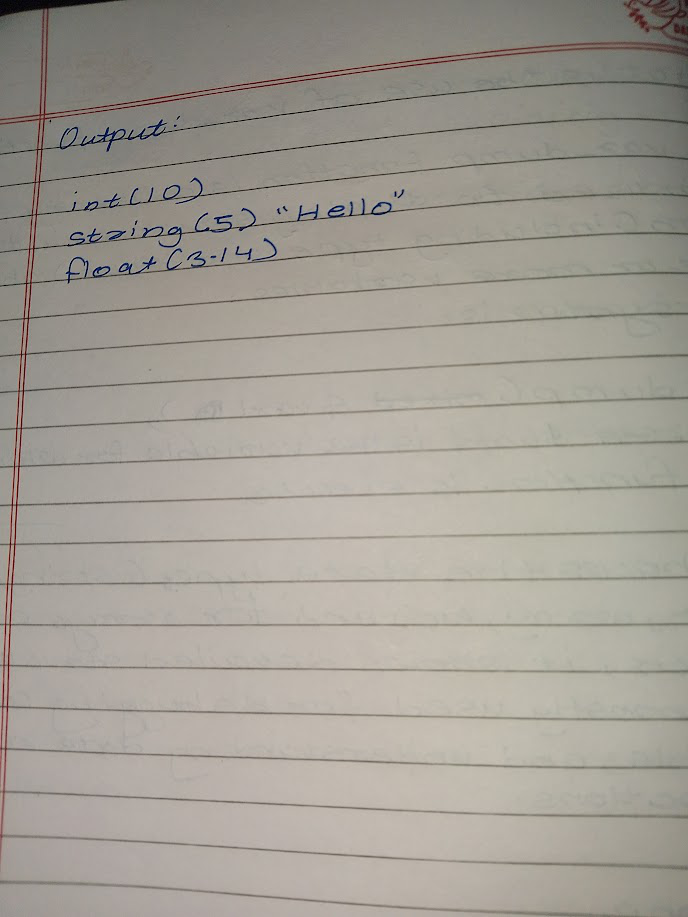 Output:
int(10)
string(5) "Hello"
float(3.14)